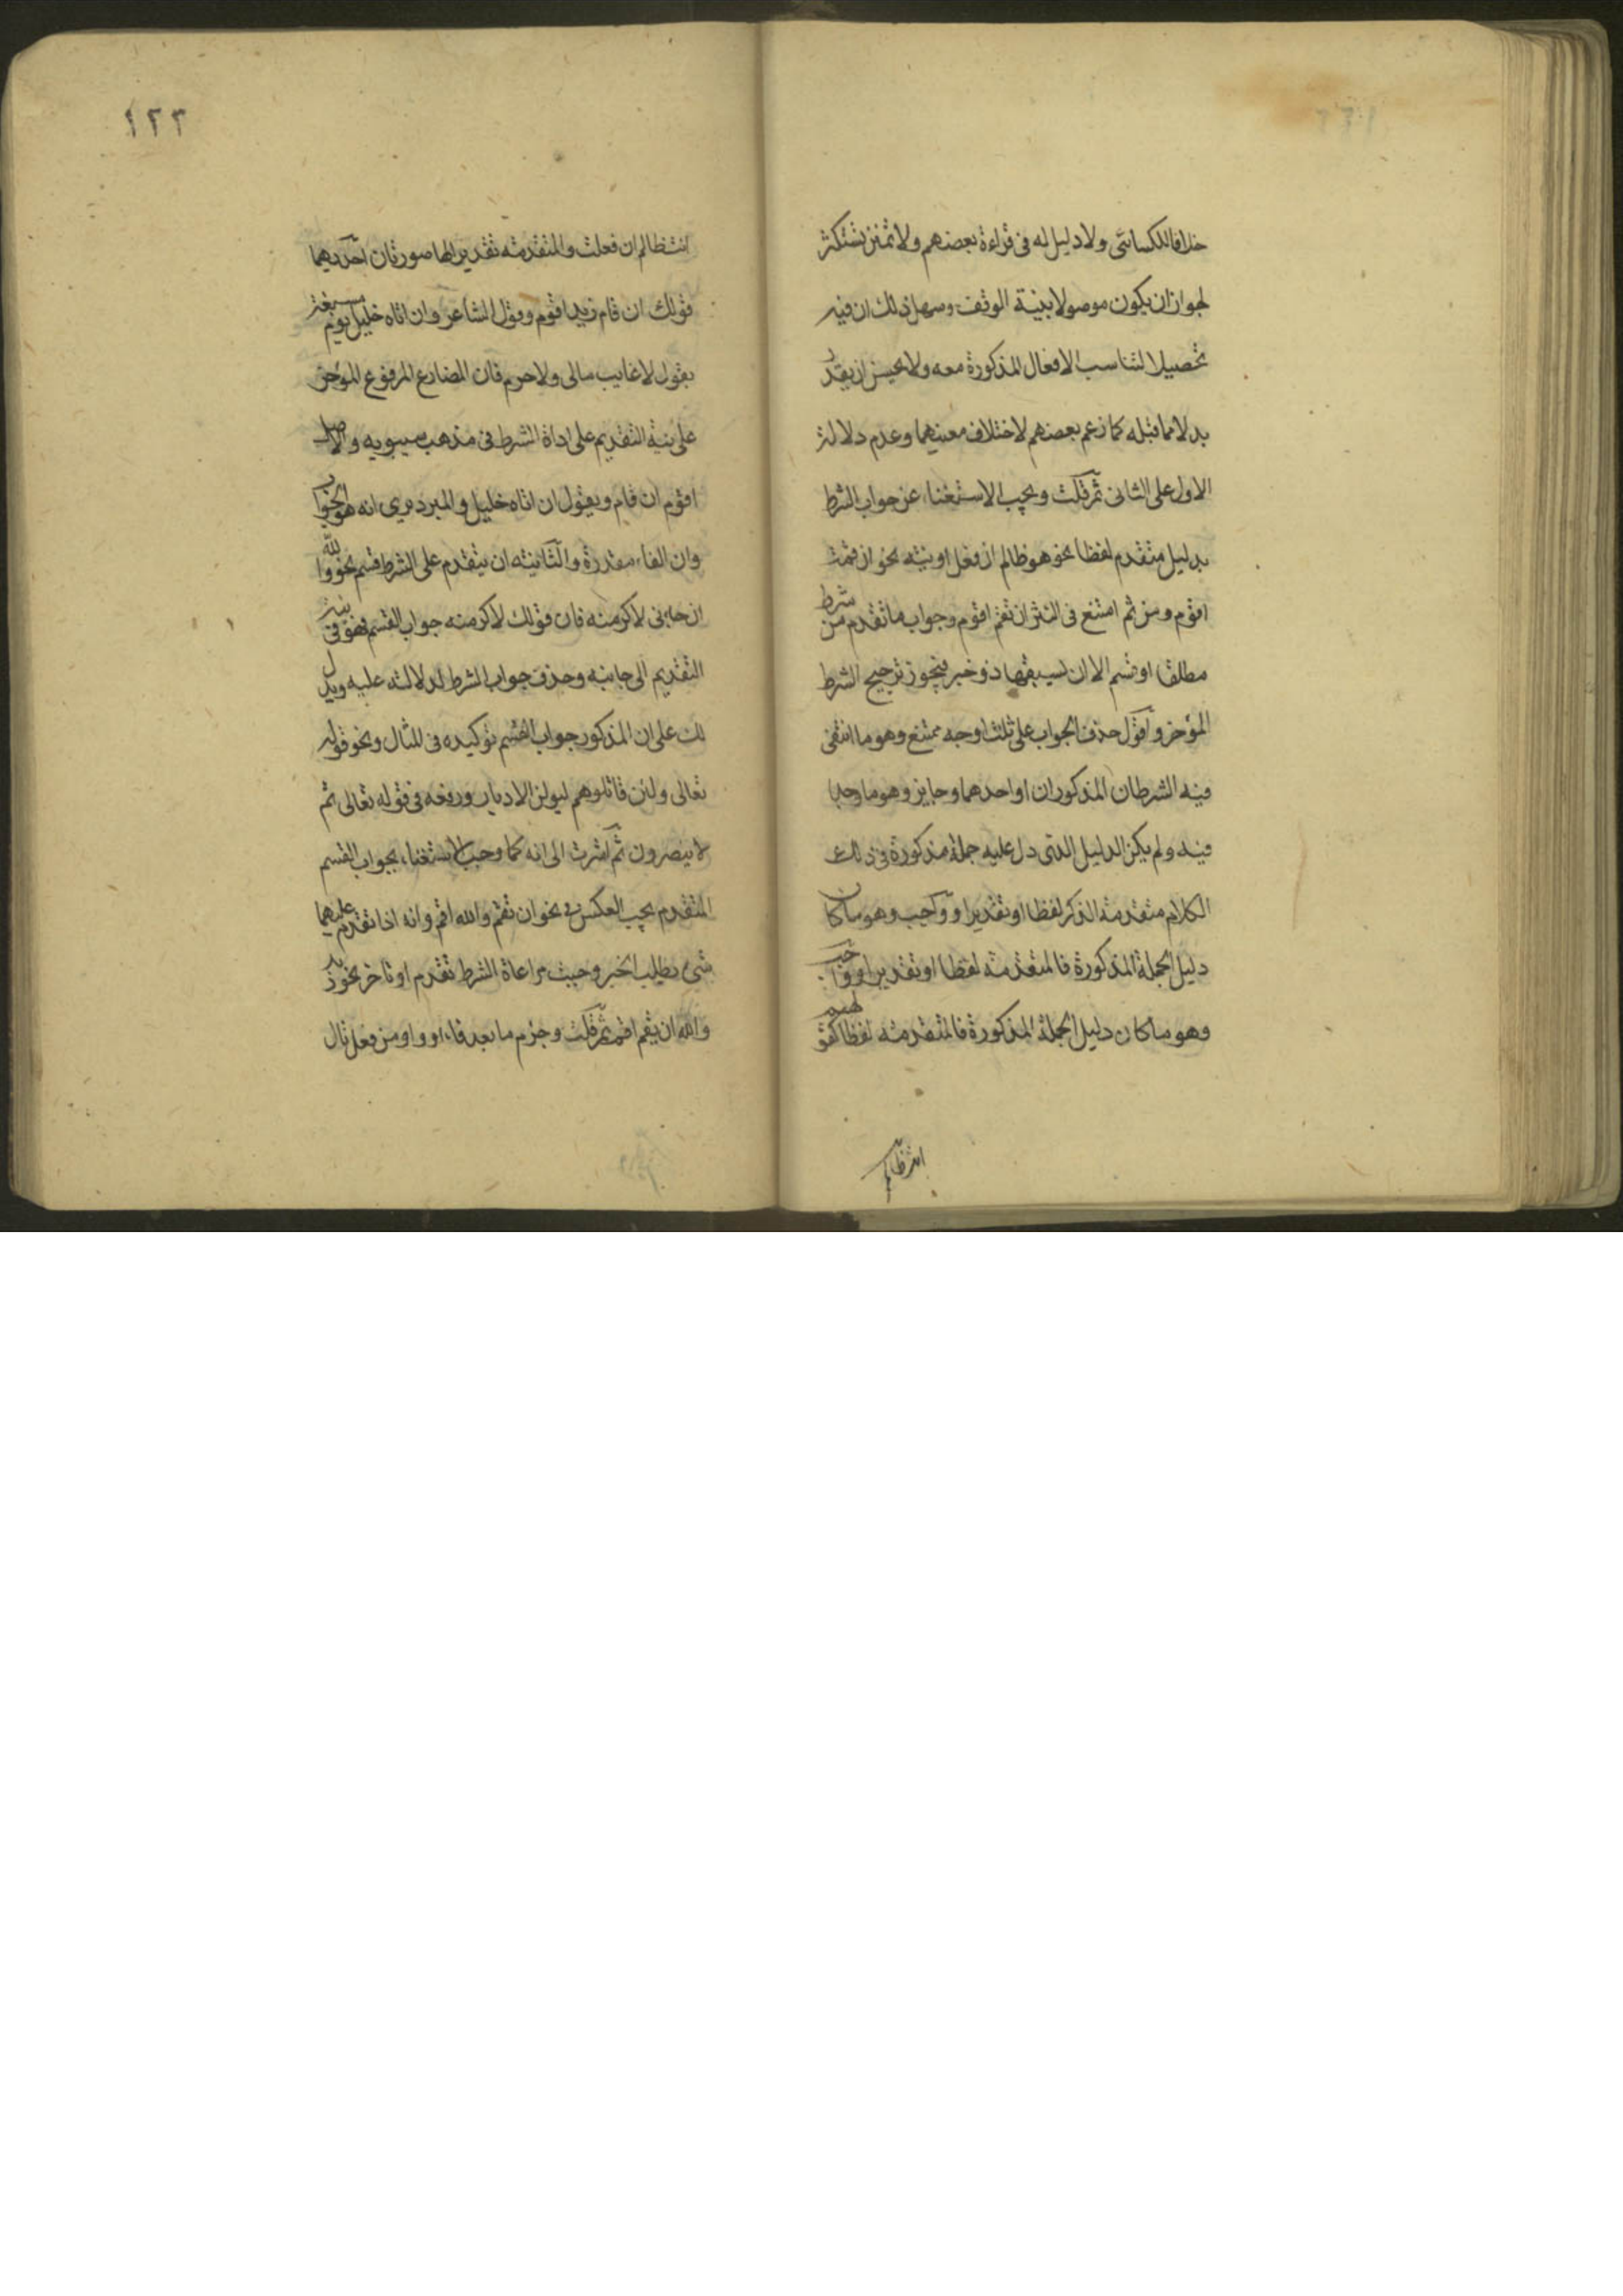 خلافا للكسائي ولا دليل له في قراءة بعضهم ولا تمنن تستكثر
لجواز ان يكون موصولا بنية الوقف وسهل ذلك ان فيه
تحصيلا لتناسب الافعال المذكورة معه ولا يحسن ان يقدر
بدلا مما قبله كما زعم بعضهم لاختلاف معنييهما وعدم دلالة
الاول على الثاني ثم قلت ويجب الاستغناء عن جواب الشرط
بدليل متقدم لفظا نحو هو ظالم ان فعل او نية نحو ان قمت
اقوم ومن ثم امتنع في النثر ان تقم اقوم وجواب ما تقدم من شرط
مطلقا او قسم الا ان يسبقها ذو خبر فيجوز ترجيح الشرط
المؤخر واقول حذف الجواب على ثلث اوجه ممتنع وهو ما انتفى
فيه الشرطان المذكوران او احدهما وجايز وهو ما وجدا
فيه ولم يكن الدليل الذى دل عليه جملة مذكورة في ذلك
الكلام متقدمة الذكر لفظا او تقديرا وواجب وهو ما كان
دليل الجملة المذكورة فالمتقدمة لفظا او تقديرا
وهو ما كان دليل الجملة المذكورة فالمتقدمة لفظا كقولهم
انت ظالم
١٢٢
انت ظالم ان فعلت والمتقدمة تقديرا لها صورتان احديهما
قولك ان قام زيد اقوم وقول الشاعر وان اتاه خليل يوم مسغبة
يقول لا غايب مالى ولا حرم فان المضارع المرفوع المؤخر
على نية التقديم على اداة الشرط في مذهب سيبويه والاصل
اقوم ان قام ويقول ان اتاه خليل والمبرد يرى انه هو الجواب
وان الفاء مقدرة والثانية ان يتقدم على الشرط قسم نحو والله
ان جاءنى لاكرمنه فان قولك لاكرمنه جواب القسم فهو في نية
التقديم الى جانبه وحذف جواب الشرط لدلالته عليه ويدل
لك على ان المذكور جواب القسم توكيده في المثال ونحو قوله
تعالى ولئن قاتلوهم ليولن الادبار ورفعه في قوله تعالى ثم
لا ينصرون ثم اشرت الى انه كما وجب الاستغناء بجواب القسم
المتقدم يجب العكس في نحو ان تقم والله اقم وانه اذا تقدم عليهما
شيء يطلب الخبر وجبت مراعاة الشرط تقدم او تاخر نحو زيد
والله ان يقم اقم ثم قلت وجزم ما بعد فاء او واو من فعل تال